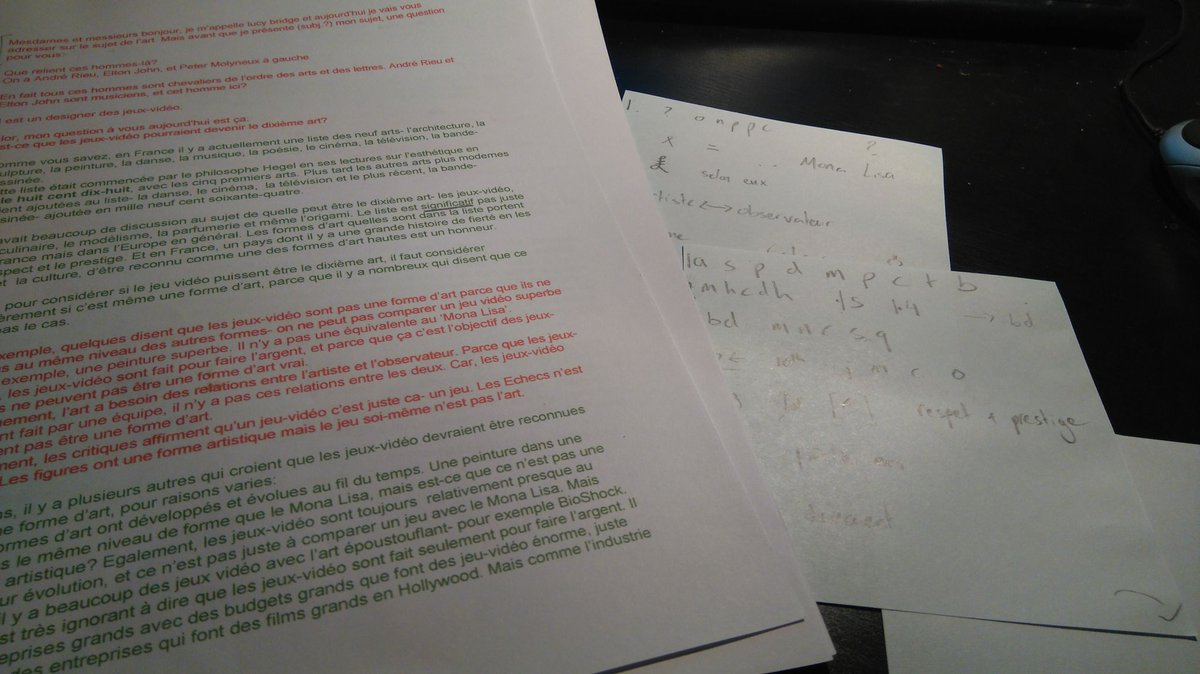 Mesdames et messieurs bonjour, je m'appelle lucy bridge et aujourd'hui je vais vous
adresser sur le sujet de l'art. Mais avant que je présente (subj ?) mon sujet, une question
pour vous:
Que relient ces hommes-là?
On a André Rieu, Elton John, et Peter Molyneux à gauche
En fait tous ces hommes sont chevaliers de l'ordre des arts et des lettres. André Rieu et
Elton John sont musiciens, et cet homme ici?
est un designer des jeux-vidéo.
mon question à vous aujourd'hui est ça:
est-ce que les jeux-vidéo pourraient devenir le dixième art?
omme vous savez, en France il y a actuellement une liste des neuf arts- l'architecture, la
culpture, la peinture, la danse, la musique, la poésie, le cinéma, la télévision, la bande-
essinée.
tte liste était commencée par le philosophe Hegel en ses lectures sur l'esthétique en
le huit cent dix-huit, avec les cinq premiers arts. Plus tard les autres arts plus modernes
ent ajoutées au liste- la danse, le cinéma, la télévision et le plus récent, la bande-
sinée- ajoutée en mille neuf cent soixante-quatre.
avait beaucoup de discussion au sujet de quelle peut être le dixième art- les jeux-vidéo,
culinaire, le modélisme, la parfumerie et même l'origami. Le liste est significatif pas juste
rance mais dans l'Europe en général. Les formes d'art quelles sont dans la liste portent
spect et le prestige. Et en France, un pays dont il y a une grande histoire de fierté en les
et la culture, d'être reconnu comme une des formes d'art hautes est un honneur.
pour considérer si le jeu vidéo puissent être le dixième art, il faut considérer
èrement si c'est même une forme d'art, parce que il y a nombreux qui disent que ce
pas le cas.
exemple, quelques disent que les jeux-vidéo sont pas une forme d'art parce que ils ne
s au même niveau des autres formes- on ne peut pas comparer un jeu vidéo superbe
exemple, une peinture superbe. Il n'y a pas une équivalente au 'Mona Lisa'.
, les jeux-vidéo sont fait pour faire l'argent, et parce que ça c'est l'objectif des jeux-
s ne peuvent pas être une forme d'art vrai.
nement, l'art a besoin des relations entre l'artiste et l'observateur. Parce que les jeux-
nt fait par une équipe, il n'y a pas ces relations entre les deux. Car, les jeux-vidéo
ent pas être une forme d'art.
ment, les critiques affirment qu'un jeu-vidéo c'est juste ca- un jeu. Les Echecs n'est
Les figures ont une forme artistique mais le jeu soi-même n'est pas l'art.
s, il y a plusieurs autres qui croient que les jeux-vidéo devraient être reconnues
ne forme d'art, pour raisons varies:
ormes d'art ont développés et évolues au fil du temps. Une peinture dans une
s le même niveau de forme que le Mona Lisa, mais est-ce que ce n'est pas une
artistique? Egalement, les jeux-vidéo sont toujours relativement presque au
ur évolution, et ce n'est pas juste à comparer un jeu avec le Mona Lisa. Mais
il y a beaucoup des jeux vidéo avec l'art époustouflant- pour exemple BioShock.
st très ignorant à dire que les jeux-vidéo sont fait seulement pour faire l'argent. Il
eprises grands avec des budgets grands que font des jeu-vidéo énorme, juste
des entreprises qui font des films grands en Hollywood. Mais comme l'industrie
1. ? o n p p c
x = .. Mona Lisa
£ selon eux
artiste <-> observateur
l a s p d m p c t b